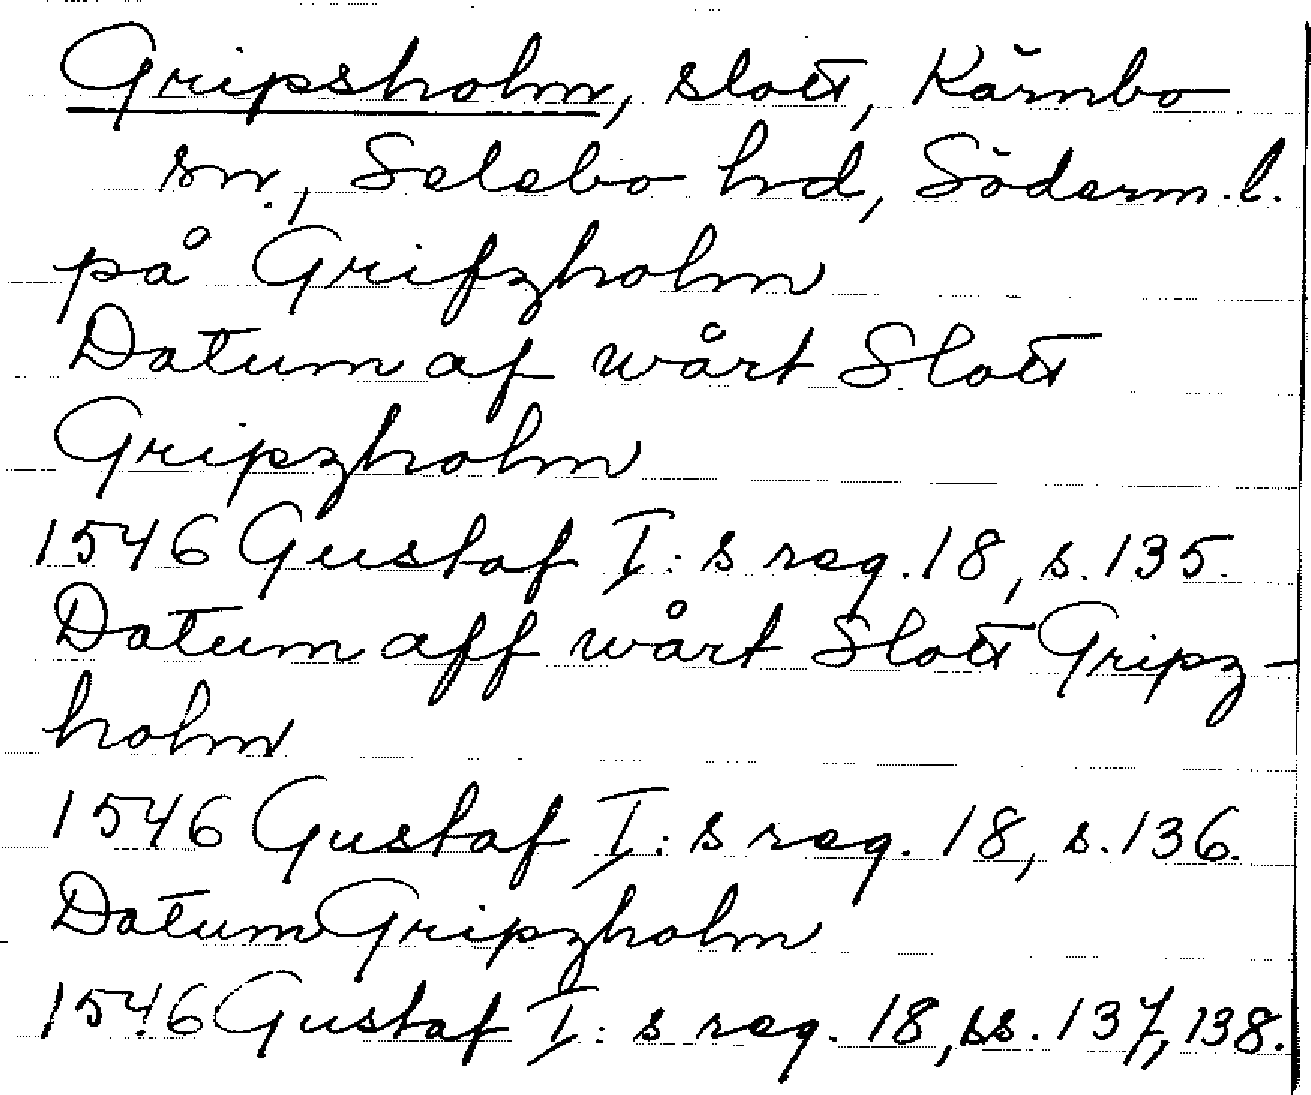 Gripsholm, slott, Kärnbo
sn., Selebo hd, Söderm. l.
på Grifzholm
Datum af wårt Slott
Gripzholm
1546 Gustaf I:s reg. 18, s. 135.
Datum aff wårt Slott Gripz-
holm
1546 Gustaf I:s reg. 18, s. 136.
Datum Gripzholm
1546 Gustaf I:s reg. 18, ss. 137, 138.